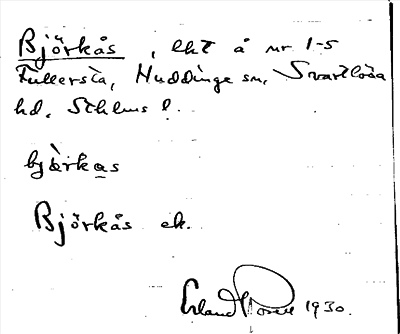 Björkås, lht å nr 1-5
Fullersta, Huddinge sn, Svartlösa
hd, Sthlms l.
bjö̀rkas
Björkås ek.
Erland Rosell 1930.